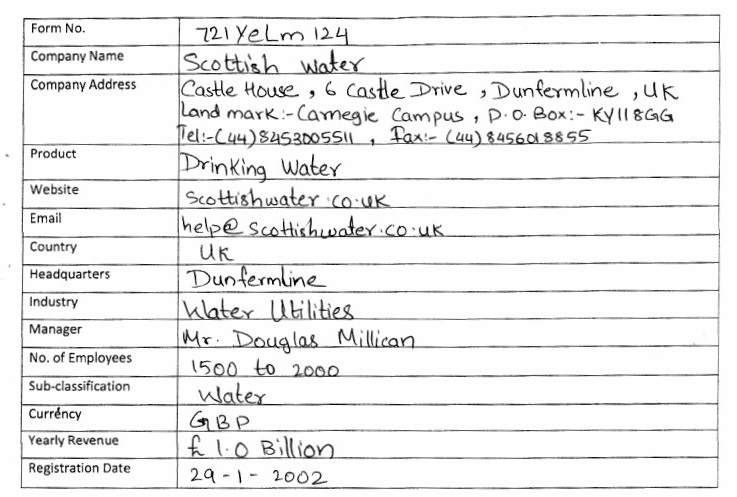 Form No. 721YeLm124
Company Name Scottish Water
Company Address Castle House, 6 Castle Drive, Dunfermline, UK
Land mark:- Carnegie Campus, P.O. Box:- KY11 8GG
Tel:-(44)8453005511, Fax:- (44)8456018855
Product Drinking Water
Website Scottishwater.co.uk
Email help@scottishwater.co.uk
Country UK
Headquarters Dunfermline
Industry Water Utilities
Manager Mr. Douglas Millican
No. of Employees 1500 to 2000
Sub-classification Water
Currency GBP
Yearly Revenue £ 1.0 Billion
Registration Date 29-1-2002